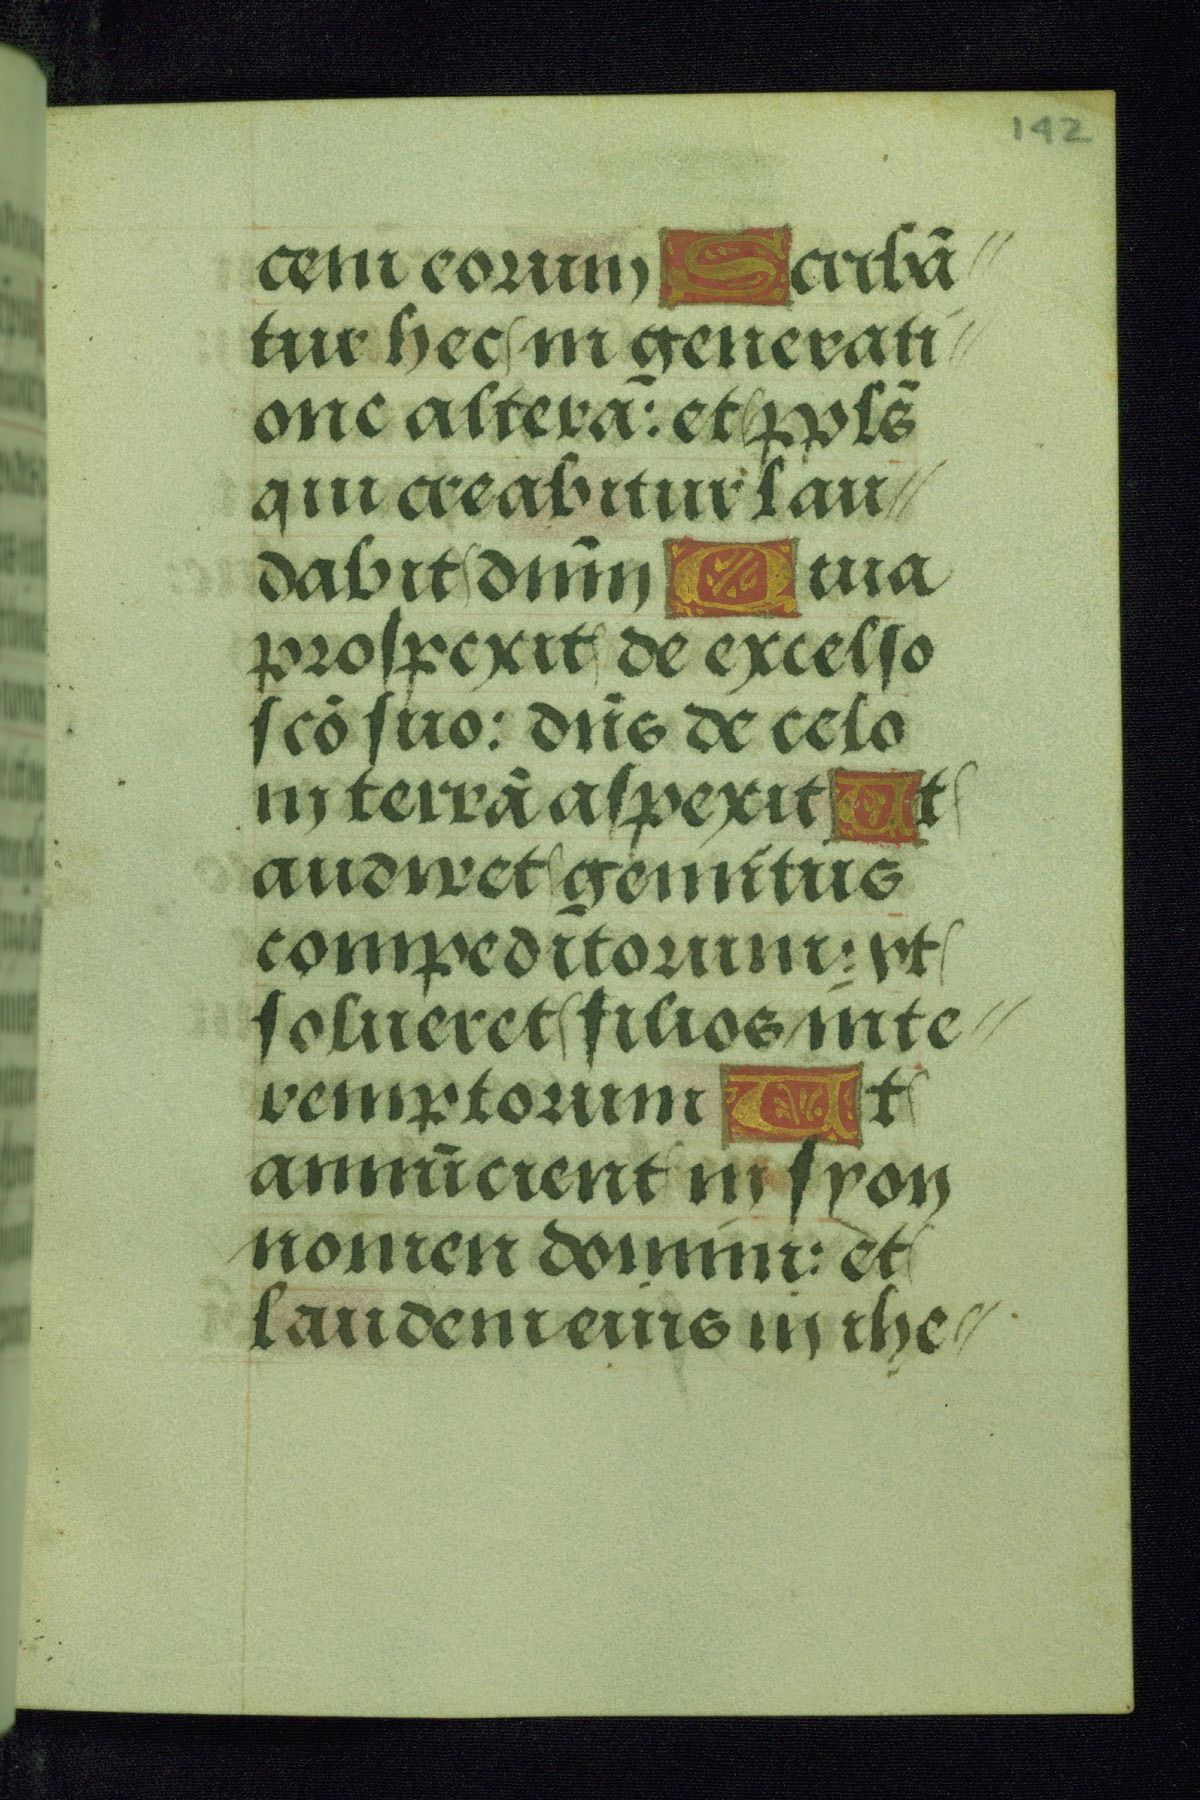 142
cem eorum Scribã //
tur hec in generati //
one alterã: et pplš
qui creabitur lau //
dabit dñm Quia
prospexit de excelso
scõ suo: dñs de celo
in terrã aspexit Ut
audiret gemitus
compeditorum: vt
solueret filios inte //
remptorum Ut
annũcient in syon
nomen domini: et
laudem eius in ihe //